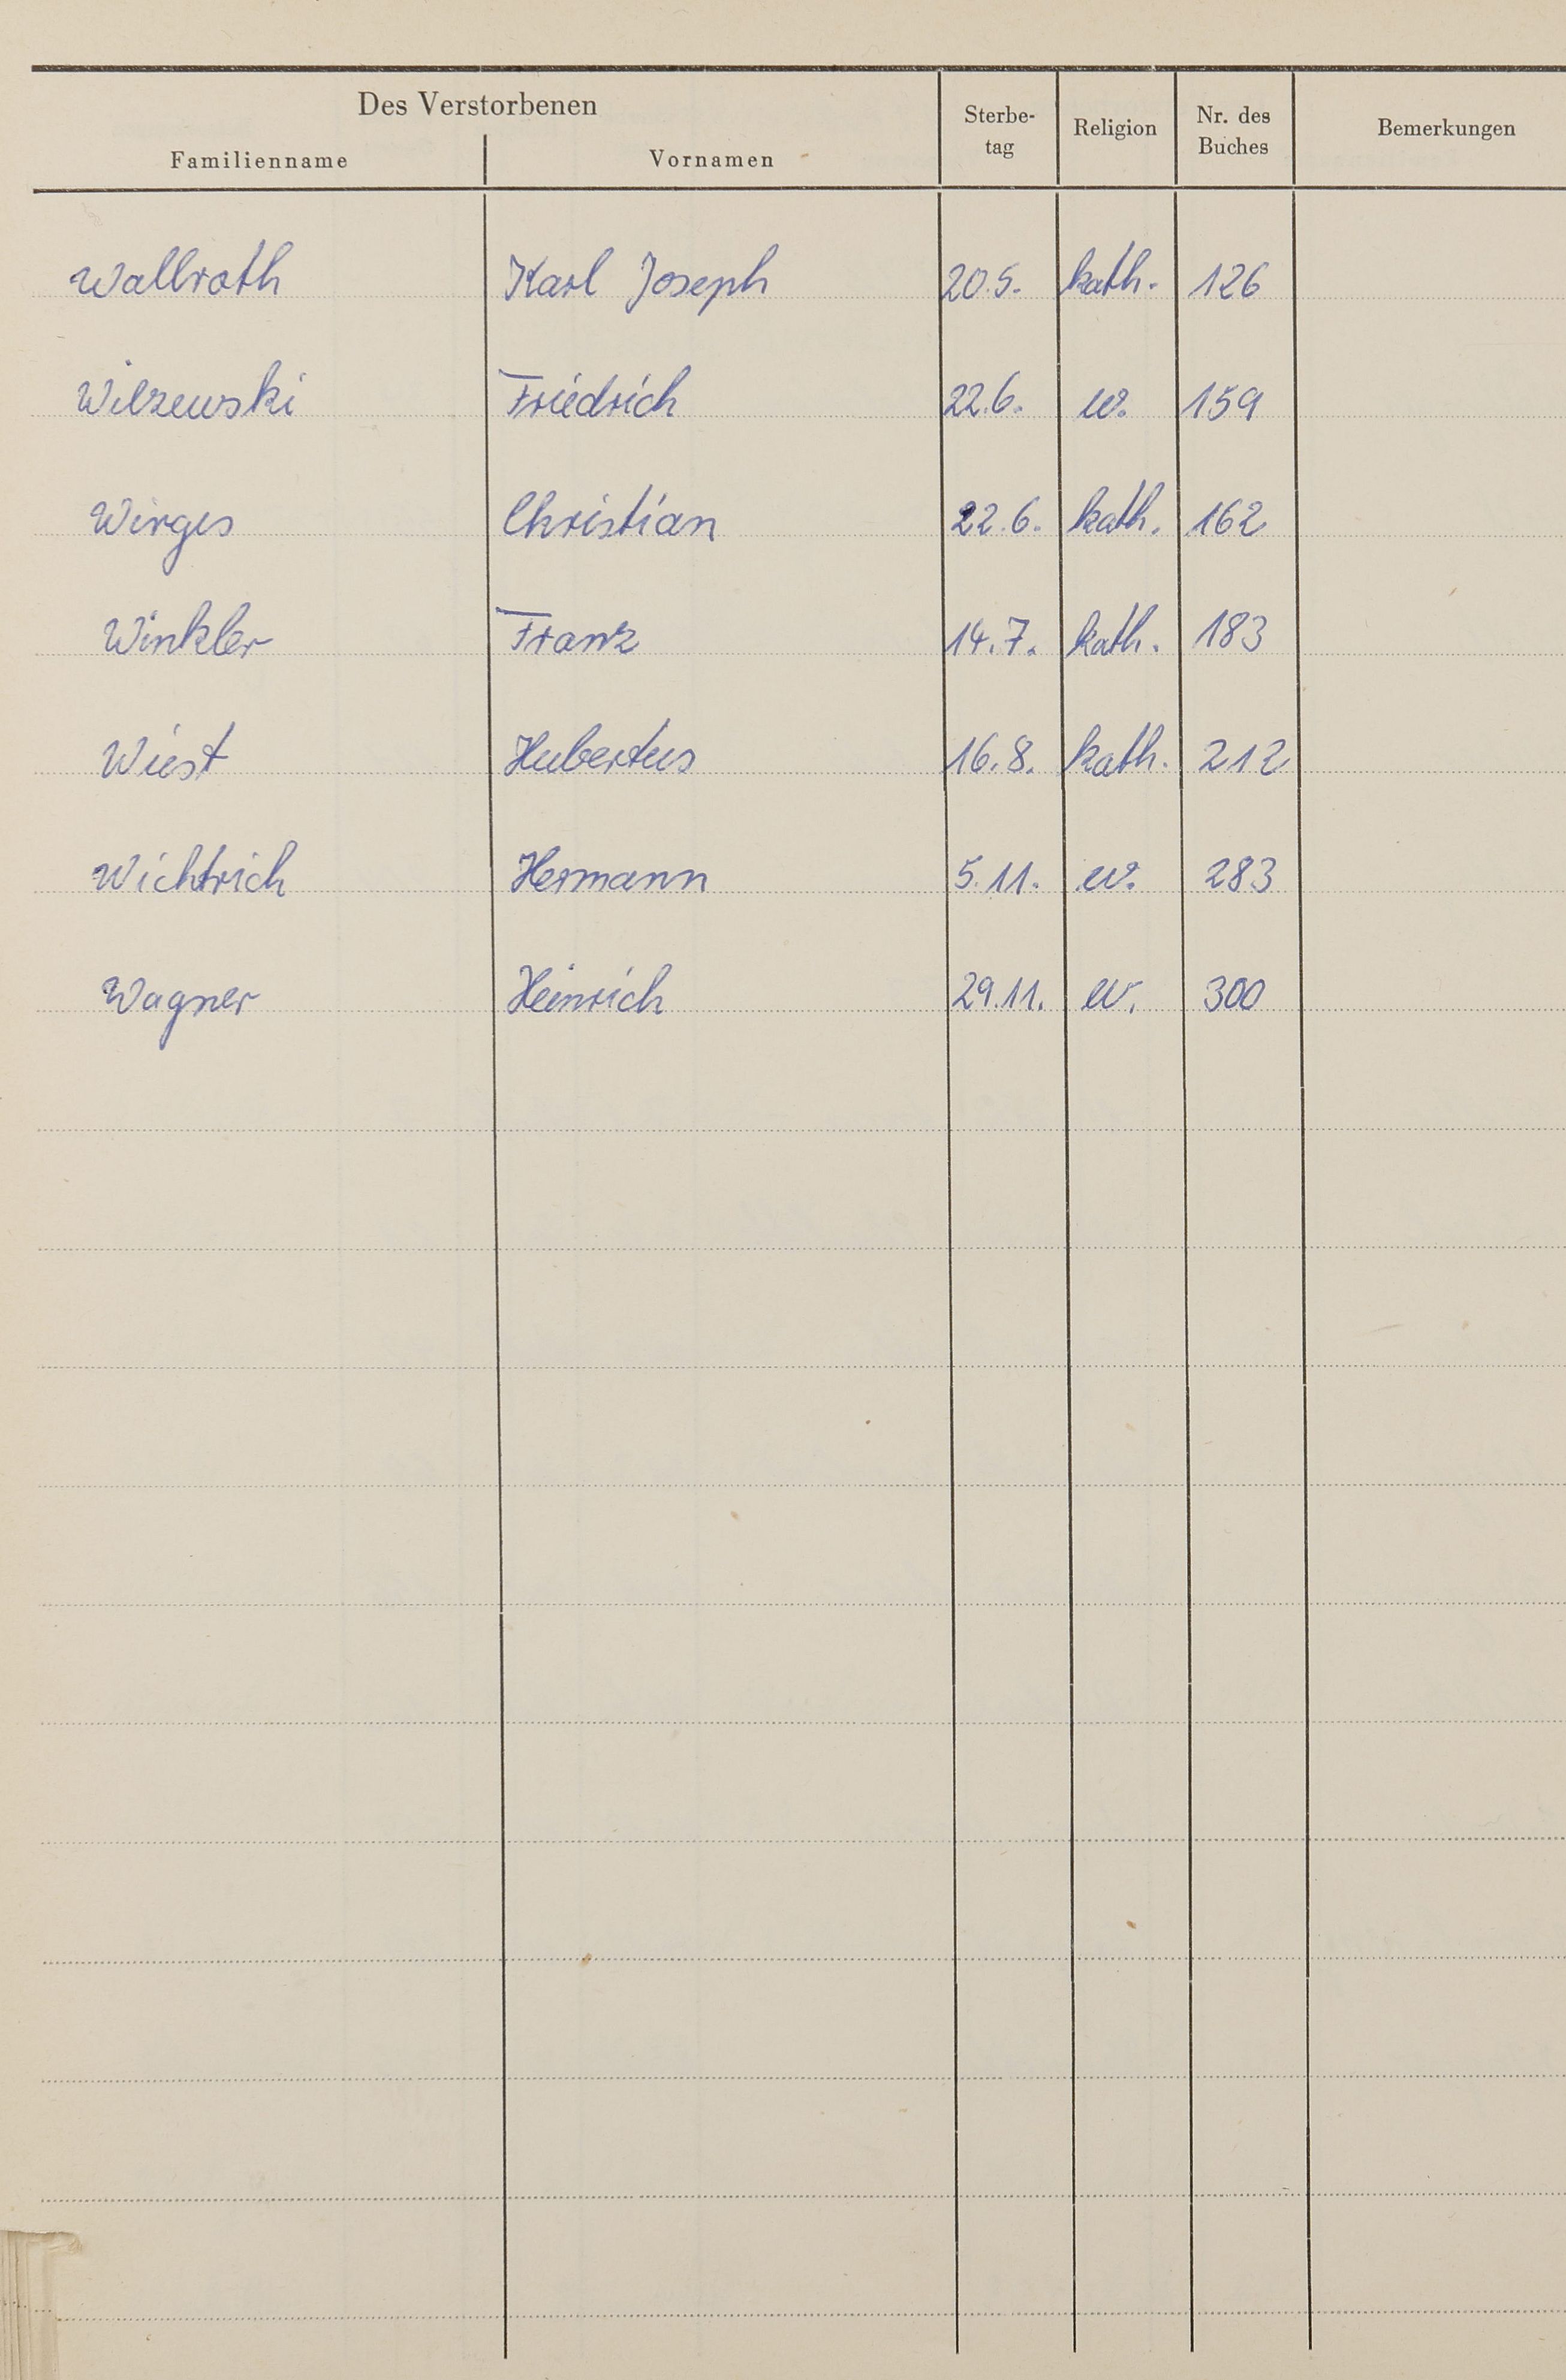 Des Verstorbenen
Familienname Vornamen Sterbe-tag Religion Nr. des Buches Bemerkungen
Wallroth Karl Joseph 20.5. kath. 126
Wilzewski Friedrich 22.6. ev. 159
Wirges Christian 22.6. kath. 162
Winkler Franz 14.7. kath. 183
Wiest Hubertus 16.8. kath. 212
Wichtrich Hermann 5.11. ev. 283
Wagner Heinrich 29.11. ev. 300